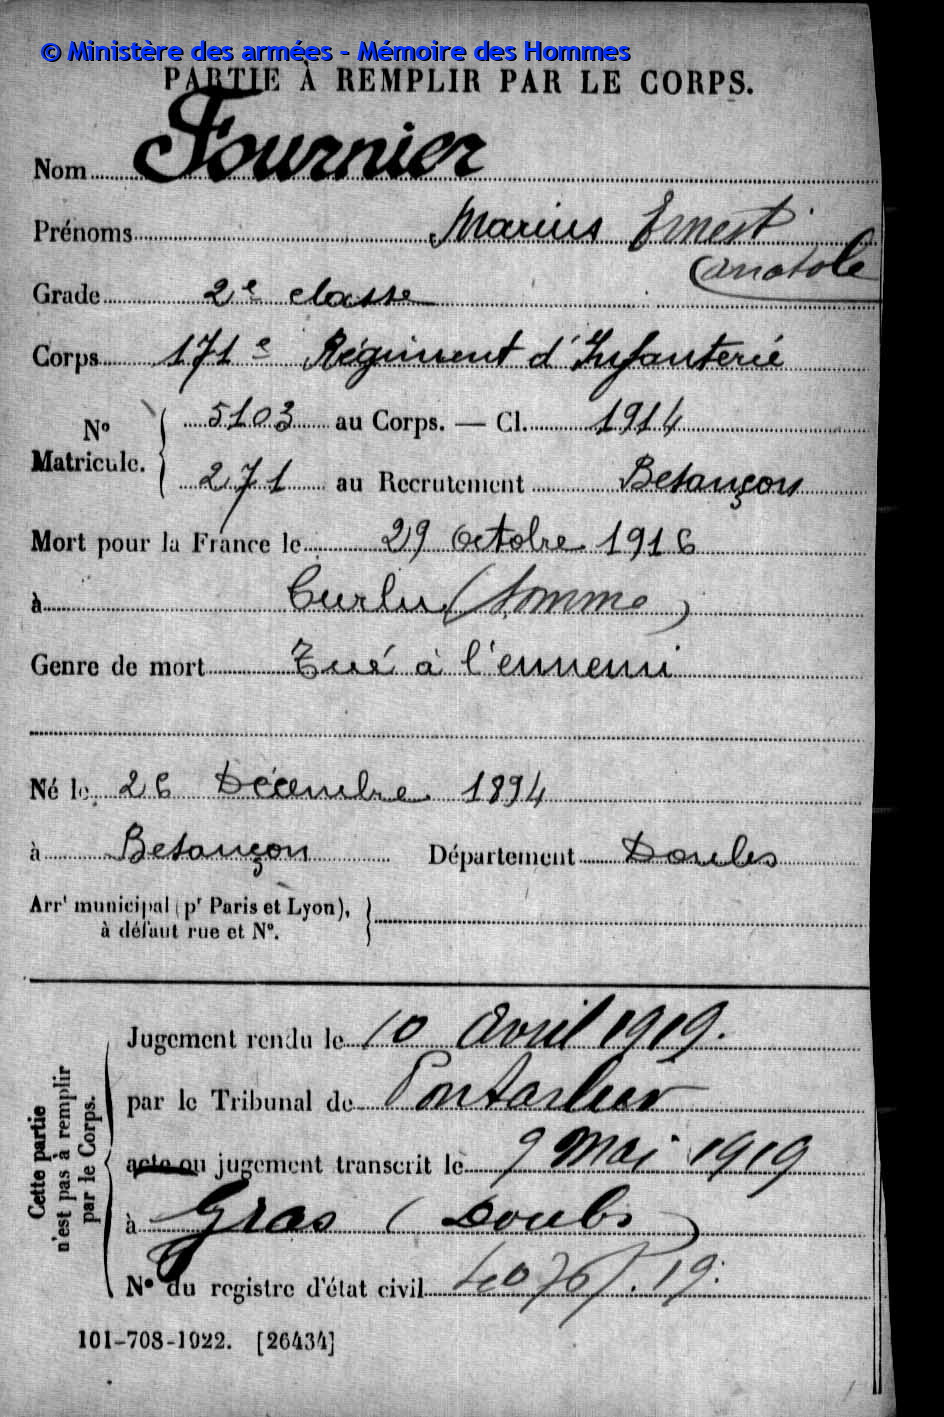 © Ministère des armées - Mémoire des Hommes
PARTIE À REMPLIR PAR LE CORPS.
Nom Fournier
Prénoms Marius Ernest
Anatole
Grade 2e classe
Corps 171e Régiment d'Infanterie
No Matricule. { 5103 au Corps. — Cl. 1914
271 au Recrutement Besançon
Mort pour la France le 29 Octobre 1916
à Curlu (Somme)
Genre de mort Tué à l'ennemi
Né le 26 Décembre 1894
à Besançon Département Doubs
Arrt municipal (pr Paris et Lyon),
à défaut rue et No.
Cette partie n'est pas à remplir par le Corps.
Jugement rendu le 10 Avril 1919.
par le Tribunal de Pontarlier
acte ou jugement transcrit le 9 Mai 1919
à Gras (Doubs)
No du registre d'état civil
101-708-1922. [26434]